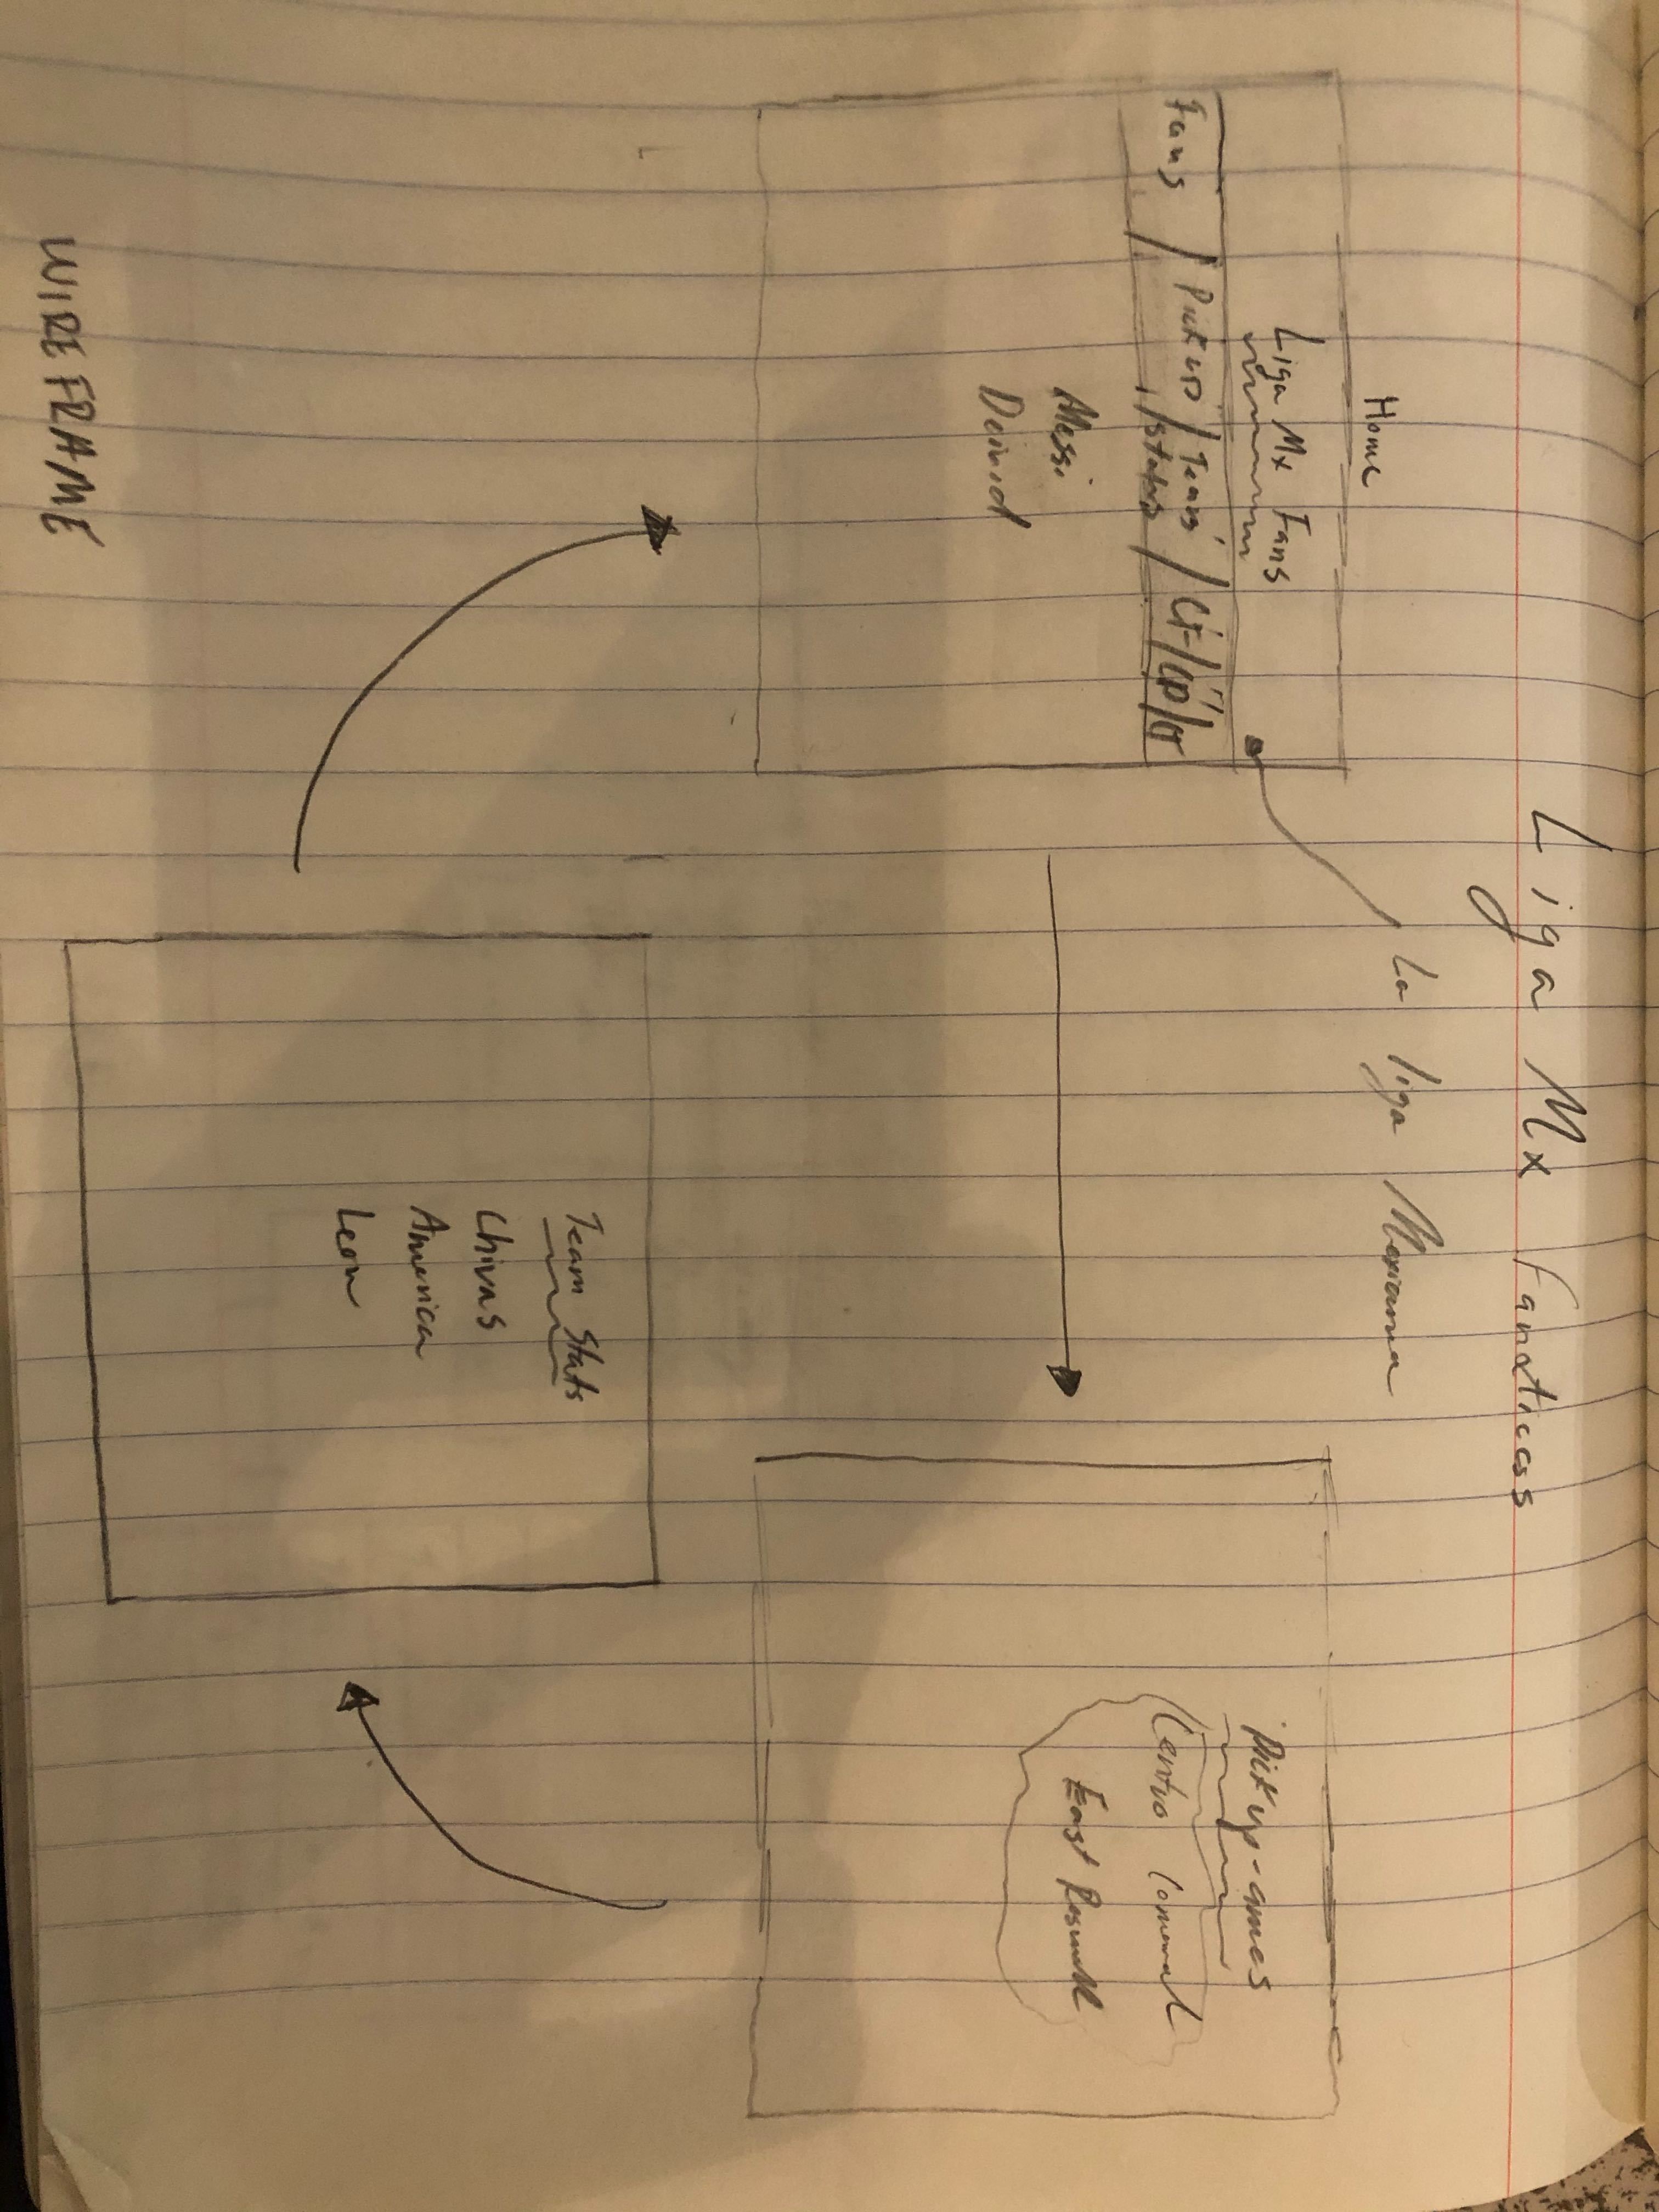 Liga Mx Fanaticos
La liga Mexicana
Home
Liga Mx Fans
Fans / Pickup / Team / CF / CP / CT
/ states
Messi
Deivid
Pickup-games
Centro Comunal
East
Team Stats
Chivas
America
Leon
WIREFRAME